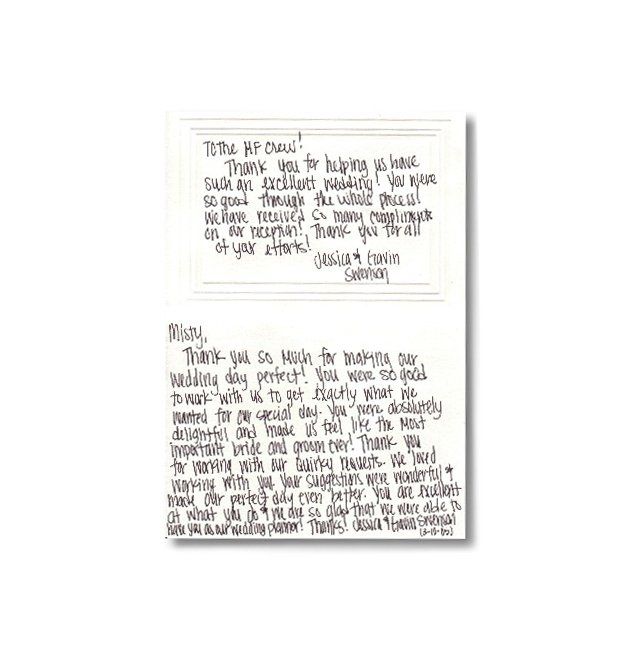 To the MF Crew!
Thank you for helping us have
such an excellent wedding! You were
so good through the whole process!
We have received so many compliments
on our reception! Thank you for all
of your efforts!
Jessica & Gavin
Swenson
Misty,
Thank you so much for making our
wedding day perfect! You were so good
to work with us to get exactly what we
wanted for our special day. You were absolutely
delightful and made us feel like the most
important bride and groom ever! Thank you
for working with our quirky requests. We loved
working with you. Your suggestions were wonderful &
made our perfect day even better. You are excellent
at what you do & we are so glad that we were able to
have you as our wedding planner! Thanks! Jessica & Gavin Swenson